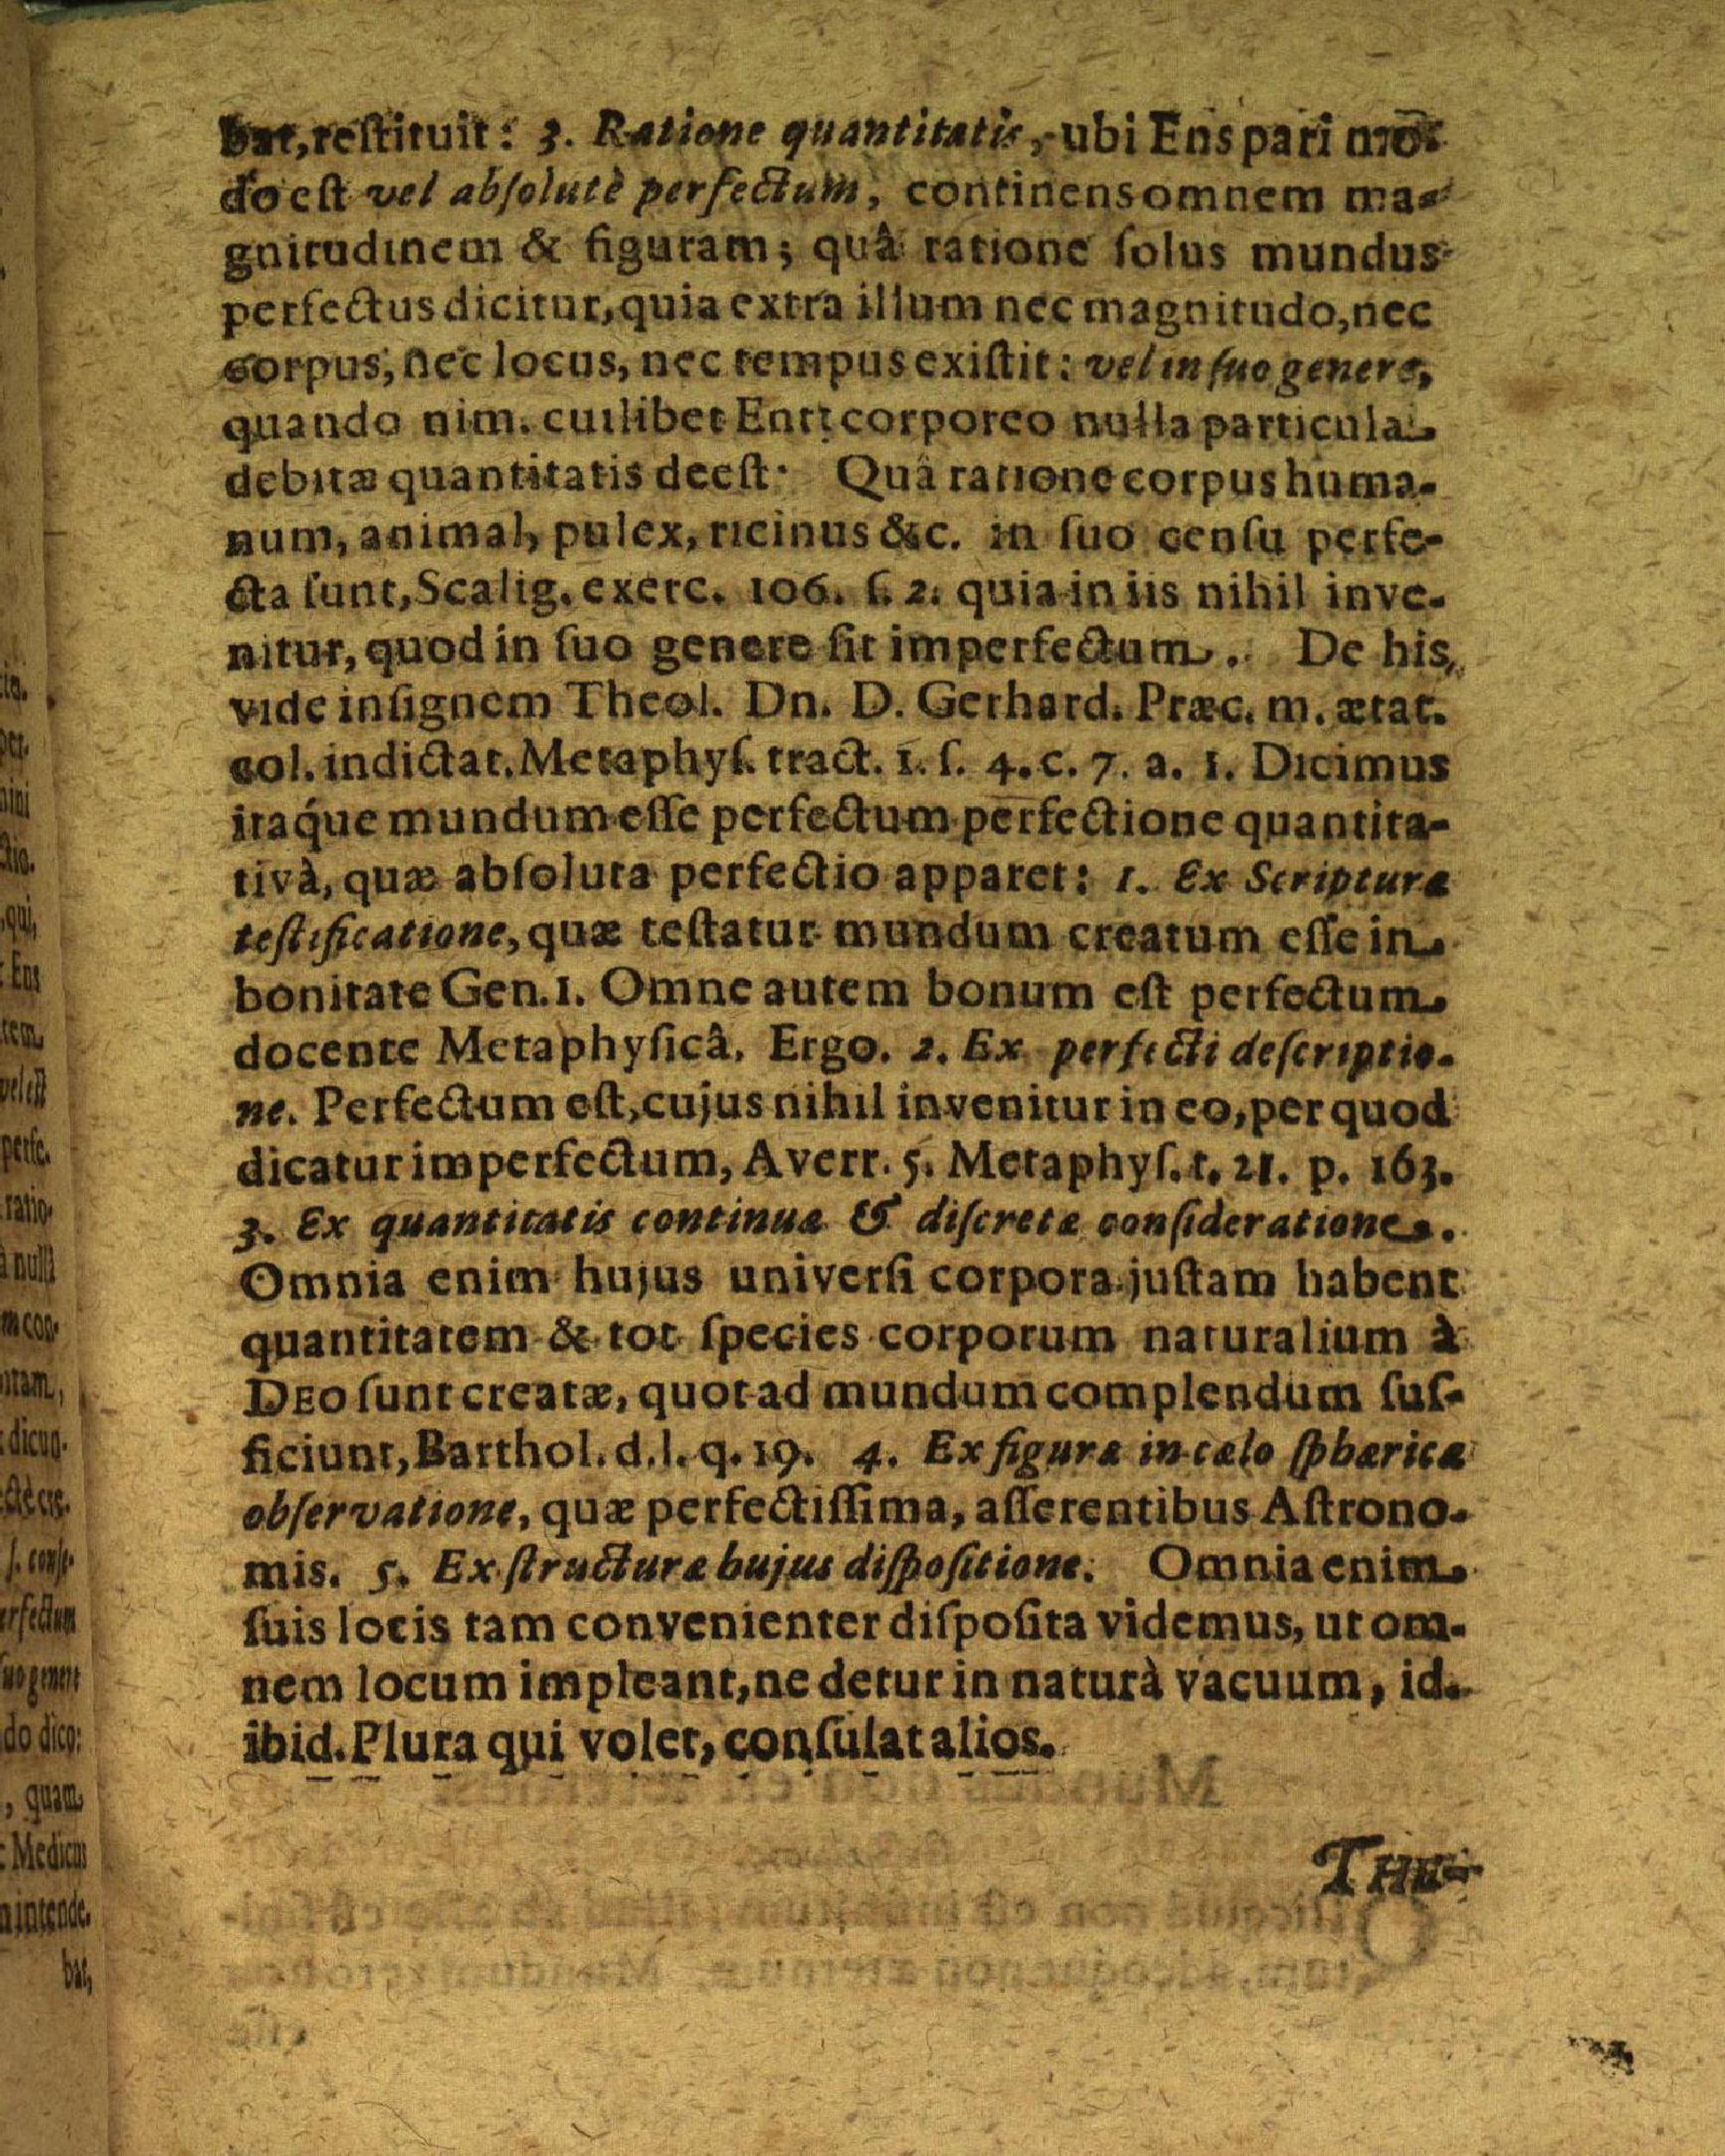 bat, reſtituit: 3. Ratione quantitatis, ubi Ens pari mo-
do eſt vel abſolutè perfectum, continens omnem ma-
gnitudinem & figuram; quâ ratione ſolus mundus
perfectus dicitur, quia extra illum nec magnitudo, nec
corpus, nec locus, nec tempus exiſtit: vel in ſuo genere,
quando nim. cuilibet Enti corporeo nulla particula
debitæ quantitatis deeſt. Quâ ratione corpus huma-
num, animal, pulex, ricinus &c. in ſuo cenſu perfe-
cta ſunt, Scalig. exerc. 106. ſ. 2. quia in iis nihil inve-
nitur, quod in ſuo genere ſit imperfectum. De his,
vide inſignem Theol. Dn. D. Gerhard. Præc. m. ætat.
col. in dictat. Metaphyſ. tract. 1. ſ. 4. c. 7. a. 1. Dicimus
itaq́ue mundum eſſe perfectum perfectione quantita-
tivà, quæ abſoluta perfectio apparet: 1. Ex Scripturæ
teſtificatione, quæ teſtatur mundum creatum eſſe in
bonitate Gen. 1. Omne autem bonum eſt perfectum
docente Metaphyſicâ. Ergo. 2. Ex perfecti deſcriptio-
ne. Perfectum eſt, cujus nihil invenitur in eo, per quod
dicatur imperfectum, Averr. 5. Metaphyſ. t. 21. p. 163.
3. Ex quantitatis continuæ & diſcretæ conſideratione.
Omnia enim hujus univerſi corpora juſtam habent
quantitatem & tot ſpecies corporum naturalium à
DEO ſunt creatæ, quot ad mundum complendum ſuf-
ficiunt, Barthol. d. l. q. 19. 4. Ex figuræ in cælo ſphæricæ
obſervatione, quæ perfectiſſima, aſſerentibus Aſtrono-
mis. 5. Ex ſtructuræ hujus diſpoſitione. Omnia enim
ſuis locis tam convenienter diſpoſita videmus, ut om-
nem locum impleant, ne detur in naturà vacuum, id.
ibid. Plura qui volet, conſulat alios.
THE-